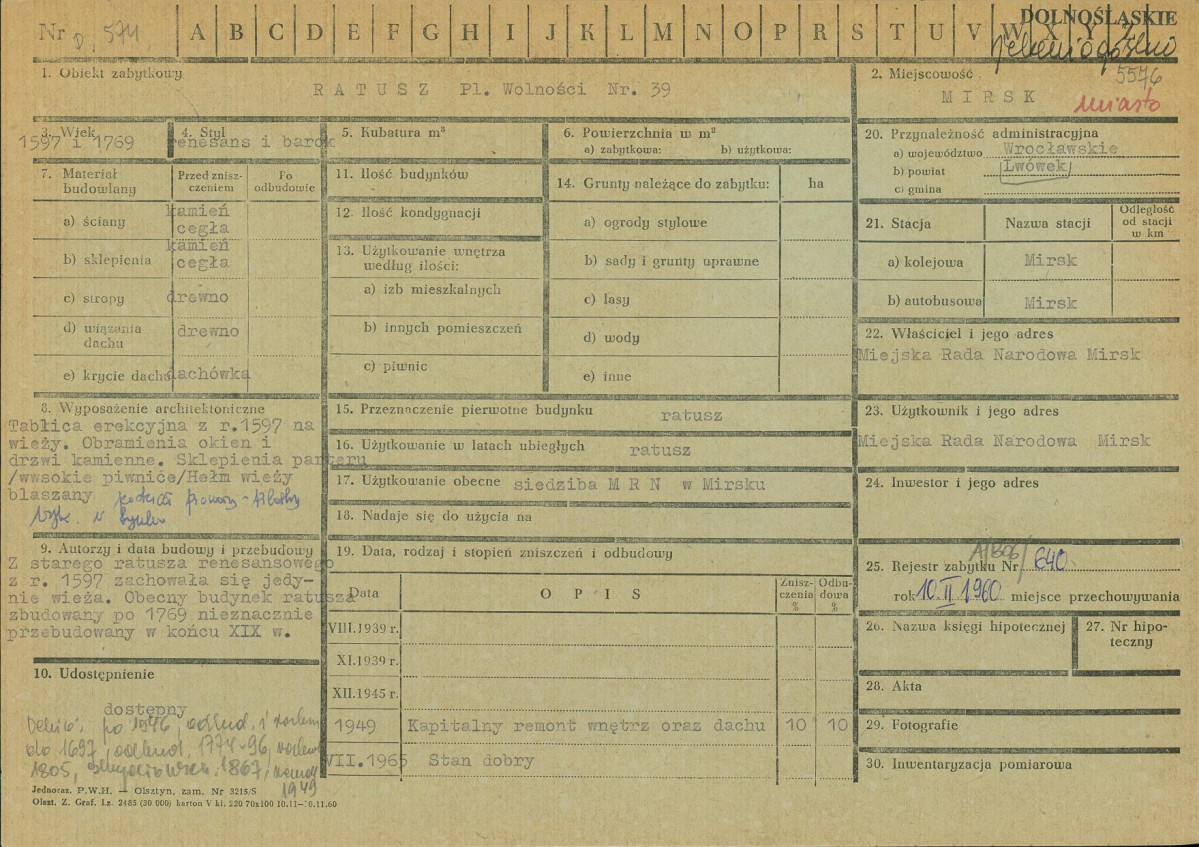 Nr D. 574. A B C D E F G H I J K L M N O P R S T U V W X Y Z
DOLNOŚLĄSKIE
1. Obiekt zabytkowy
RATUSZ Pl. Wolności Nr. 39
2. Miejscowość 5576
MIRSK miasto
3. Wiek
1597 i 1769
4. Styl
renesans i barok
5. Kubatura m³
6. Powierzchnia w m²
a) zabytkowa: b) użytkowa:
20. Przynależność administracyjna
a) województwo Wrocławskie
b) powiat Lwówek
c) gmina
7. Materiał budowlany
Przed znisz-czeniem
Po odbudowie
a) ściany kamień cegła
b) sklepienia kamień cegła
c) stropy drewno
d) wiązania dachu drewno
e) krycie dachu dachówka
11. Ilość budynków
12. Ilość kondygnacji
13. Użytkowanie wnętrza
według ilości:
a) izb mieszkalnych
b) innych pomieszczeń
c) piwnic
14. Grunty należące do zabytku: ha
a) ogrody stylowe
b) sady i grunty uprawne
c) lasy
d) wody
e) inne
21. Stacja
Nazwa stacji
Odległość od stacji w km
a) kolejowa Mirsk
b) autobusowa Mirsk
22. Właściciel i jego adres
Miejska Rada Narodowa Mirsk
8. Wyposażenie architektoniczne
Tablica erekcyjna z r.1597 na
wieży. Obramienia okien i
drzwi kamienne. Sklepienia parteru
/wwsokie piwnice/Hełm wieży
blaszany
15. Przeznaczenie pierwotne budynku ratusz
16. Użytkowanie w latach ubiegłych ratusz
17. Użytkowanie obecne siedziba M R N w Mirsku
18. Nadaje się do użycia na
23. Użytkownik i jego adres
Miejska Rada Narodowa Mirsk
24. Inwestor i jego adres
9. Autorzy i data budowy i przebudowy
Z starego ratusza renesansowego
z r. 1597 zachowała się jedy-
nie wieża. Obecny budynek ratusza
zbudowany po 1769 nieznacznie
przebudowany w końcu XIX w.
19. Data, rodzaj i stopień zniszczeń i odbudowy
Data
OPIS
Znisz-czenia %
Odbu-dowa %
VIII.1939 r.
XI.1939 r.
XII.1945 r.
1949 Kapitalny remont wnętrz oraz dachu 10 10
VII.1965 Stan dobry
25. Rejestr zabytku Nr A/1806/ 640
rok 10.II 1960 miejsce przechowywania
26. Nazwa księgi hipotecznej
27. Nr hipo-teczny
28. Akta
29. Fotografie
30. Inwentaryzacja pomiarowa
10. Udostępnienie
dostępny
po 1546, odbud. i
do 1697, odbud. 1774-96,
1805, 1867,
1949
Jednoraz. P.W.H. — Olsztyn, zam. Nr 3215/S
Olszt. Z. Graf. Lz. 2485 (30 000) karton V kl. 220 70x100 10.11—30.11.60